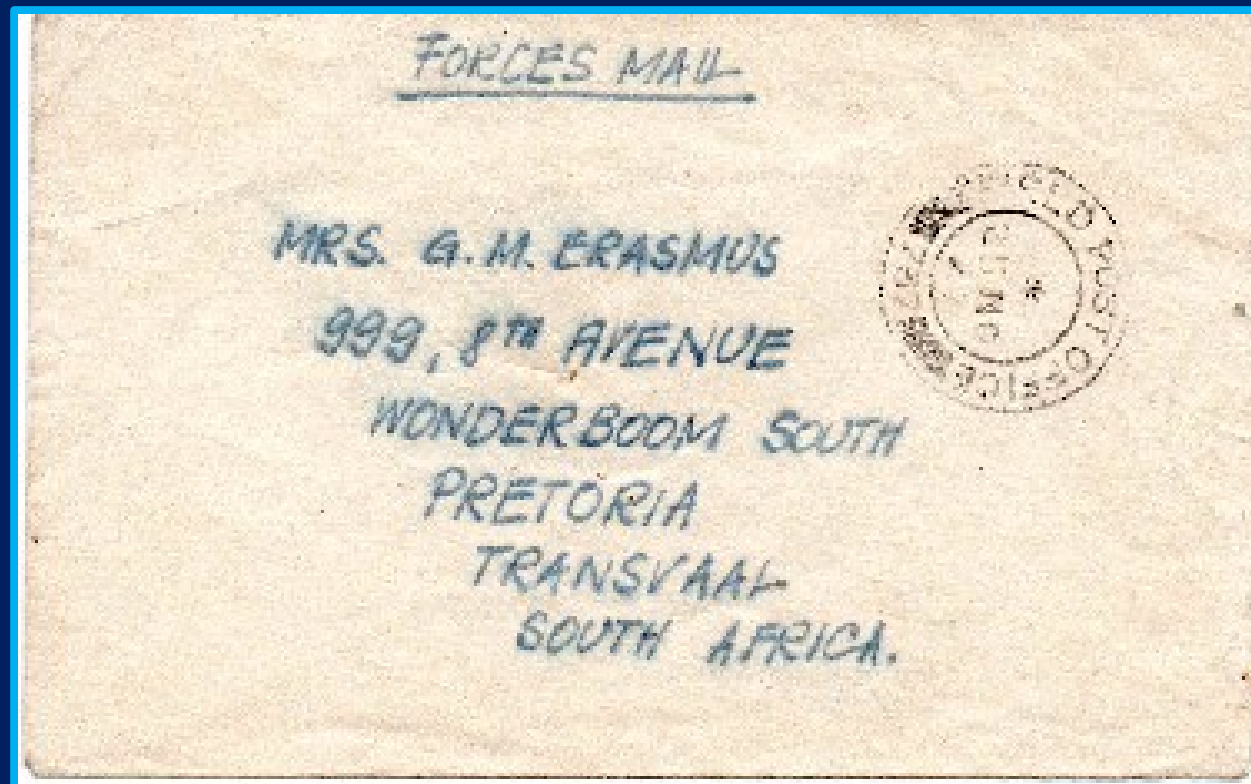 FORCES MAIL
MRS. G. M. ERASMUS
999, 8TH AVENUE
WONDERBOOM SOUTH
PRETORIA
TRANSVAAL
SOUTH AFRICA.
FIELD POST OFFICE